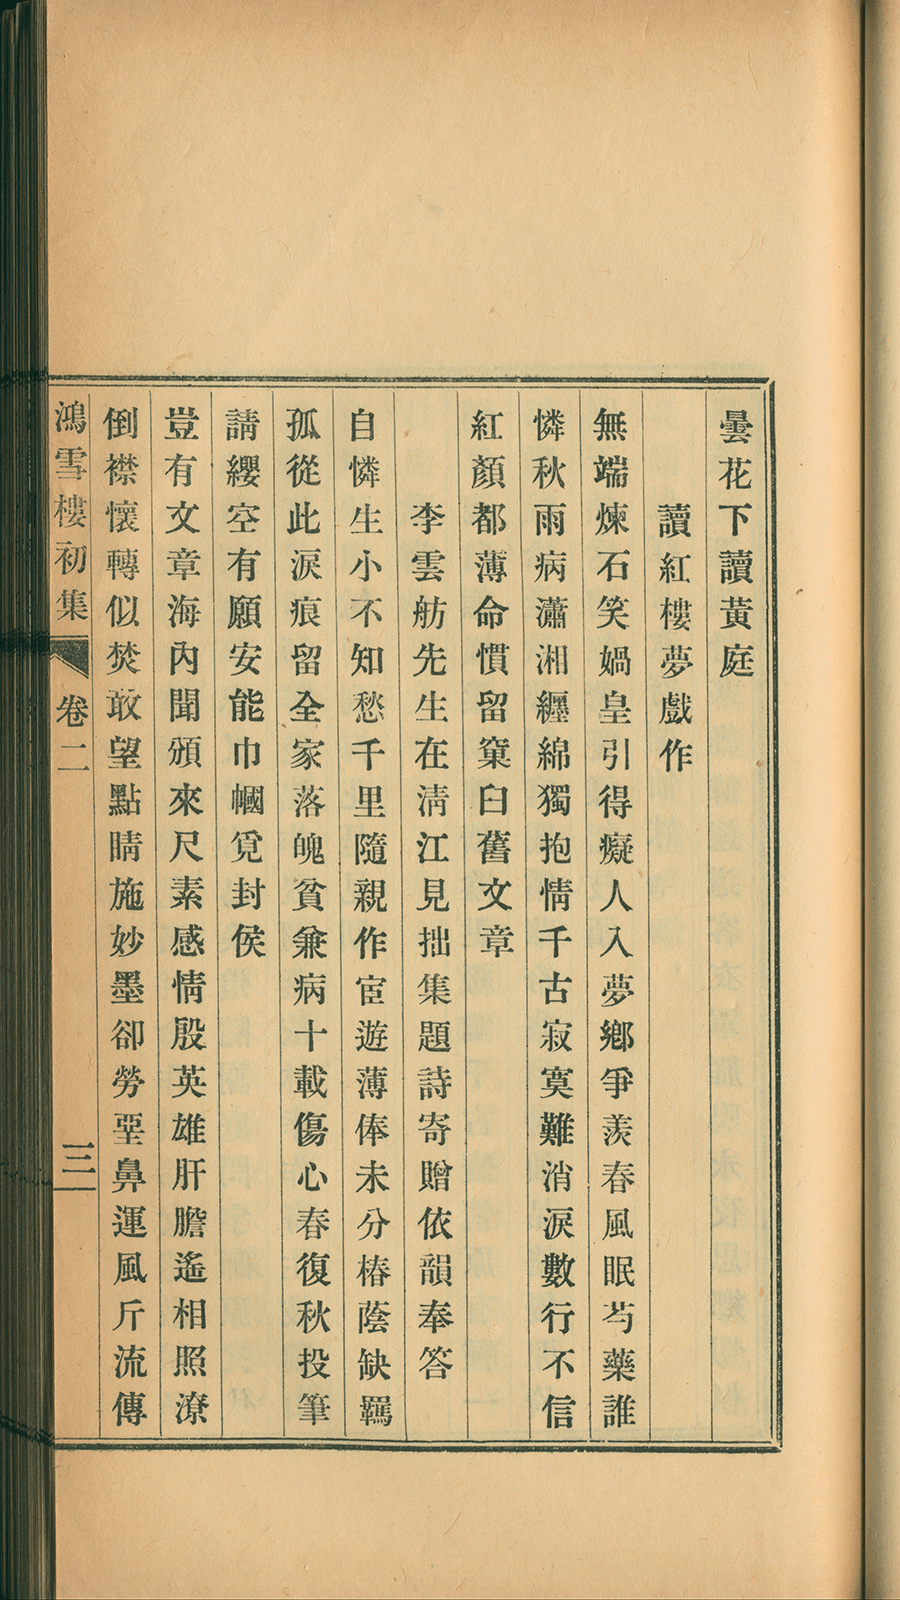 曇花下讀黃庭
讀紅樓夢戲作
無端煉石笑媧皇引得癡人入夢鄉爭羨春風眠芍藥誰
憐秋雨病瀟湘纒綿獨抱情千古寂寞難消淚數行不信
紅顏都薄命慣留窠臼舊文章
李雲舫先生在淸江見拙集題詩寄贈依韻奉答
自憐生小不知愁千里隨親作宦遊薄俸未分椿蔭缺羈
孤從此淚痕留全家落魄貧兼病十載傷心春復秋投筆
請纓空有願安能巾幗覓封侯
豈有文章海內聞頒來尺素感情殷英雄肝膽遙相照潦
倒襟懷轉似焚敢望點睛施妙墨卻勞堊鼻運風斤流傳
鴻雪樓初集 卷二 三